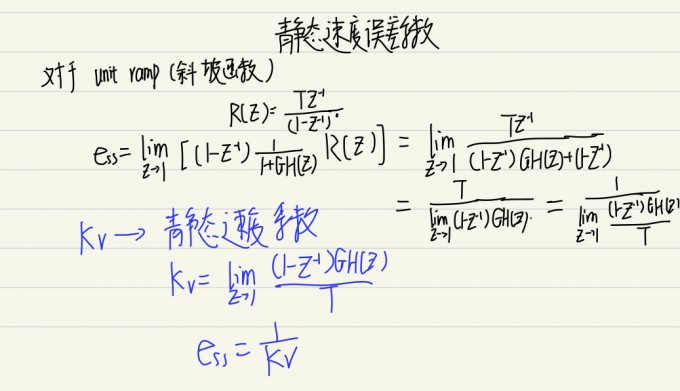 静态速度误差系数
对于 unit ramp (斜坡函数)
R(Z)= TZ⁻¹/(1-Z⁻¹)²
ess= lim z→1 [(1-Z⁻¹) 1/(1+GH(Z)) R(Z)] = lim z→1 TZ⁻¹/((1-Z⁻¹)GH(Z)+(1-Z⁻¹))
= T/(lim z→1 (1-Z⁻¹)GH(Z)) = 1/(lim z→1 (1-Z⁻¹)GH(Z)/T)
Kv → 静态速度系数
Kv= lim z→1 (1-Z⁻¹)GH(Z)/T
ess= 1/Kv